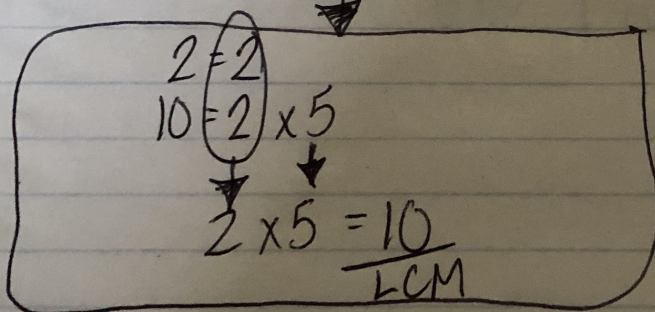 2 = 2
10 = 2 x 5
2 x 5 = 10
LCM